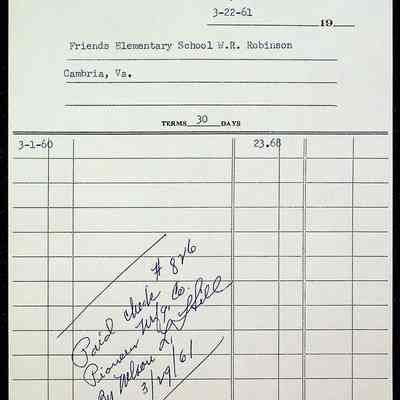 3-22-61
19
Friends Elementary School W.R. Robinson
Cambria, Va.
TERMS 30 DAYS
3-1-60 23.68
Paid check # 826
Pioneer Mfg. Co.
By Nelson L. Hill
3/29/61